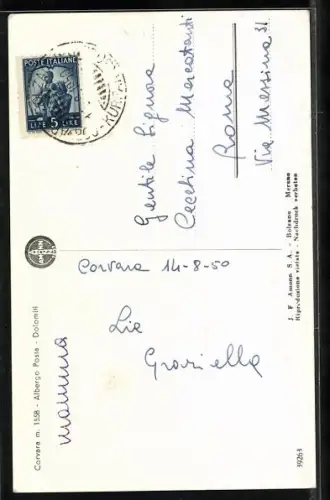 POSTE ITALIANE
LIRE 5 LIRE
Gentile Signora
Cecetina Mercatanti
Roma
Via Messina 31
Corvara 14-8-50
Lia
Graziella
mamma
Corvara m. 1558 - Albergo Posta - Dolomiti
J. F. Amonn S. A. - Bolzano - Merano
Riproduzione vietata - Nachdruck verboten
39263